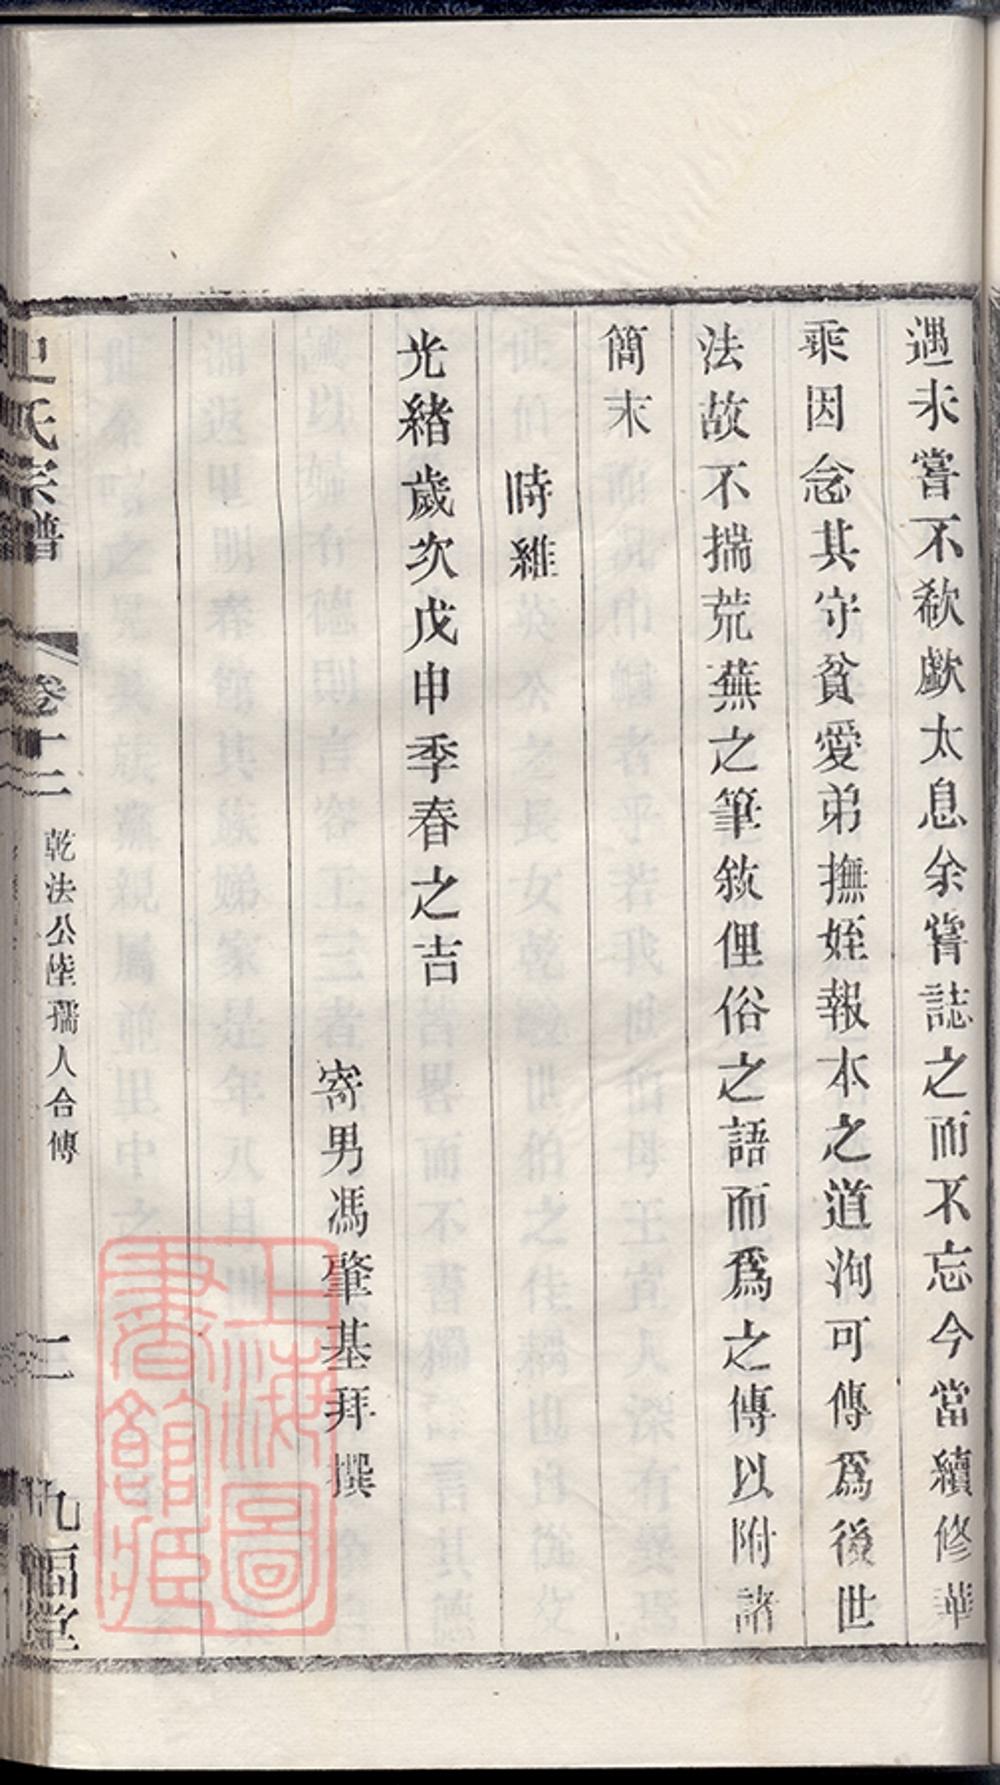 遇未嘗不欷歔太息余嘗誌之而不忘今當續修華
乘因念其守貧愛弟撫姪報本之道洵可傳爲後世
法故不揣荒蕪之筆敘俚俗之語而爲之傳以附諸
簡末
時維
光緒歲次戊申季春之吉
寄男馮肇基拜撰
氏宗譜
卷十二
乾法公陸孺人合傳
三
九福堂
上海圖書館藏